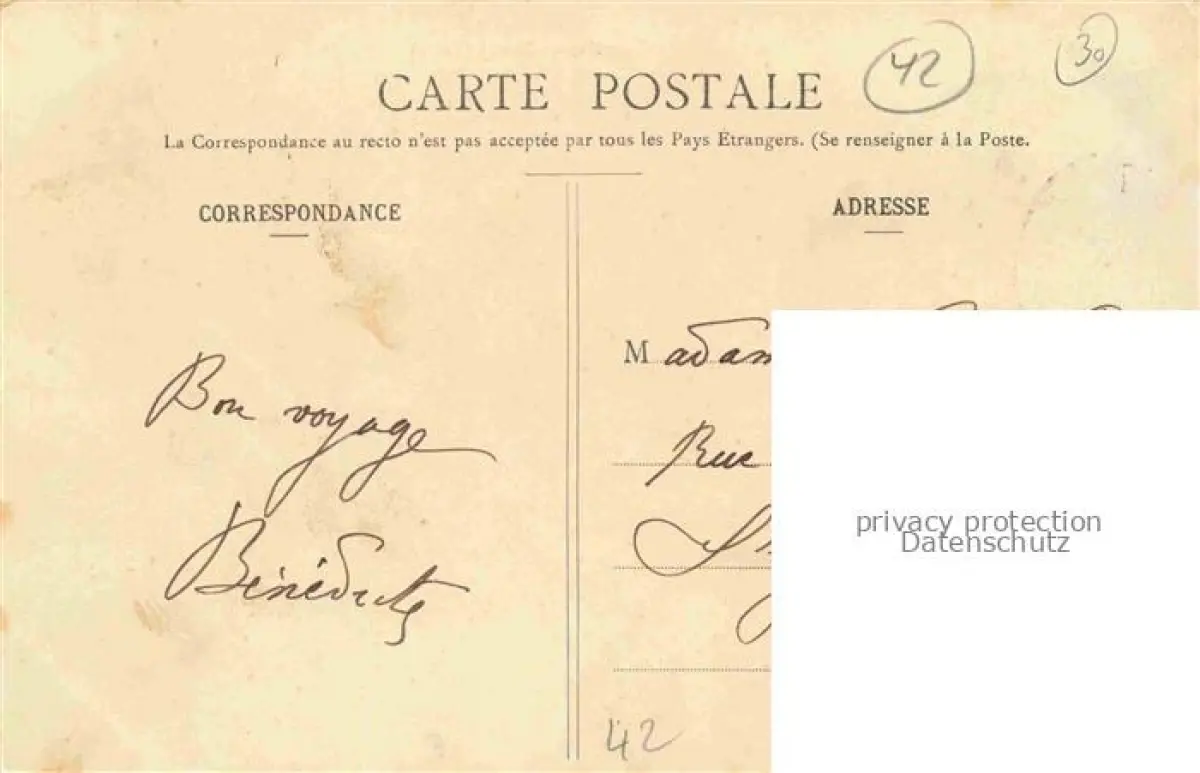 42
30
CARTE POSTALE
La Correspondance au recto n'est pas acceptée par tous les Pays Etrangers. (Se renseigner à la Poste.
CORRESPONDANCE
ADRESSE
Bon voyage
Bénédicte
Madam
Rue
privacy protection
Datenschutz
42